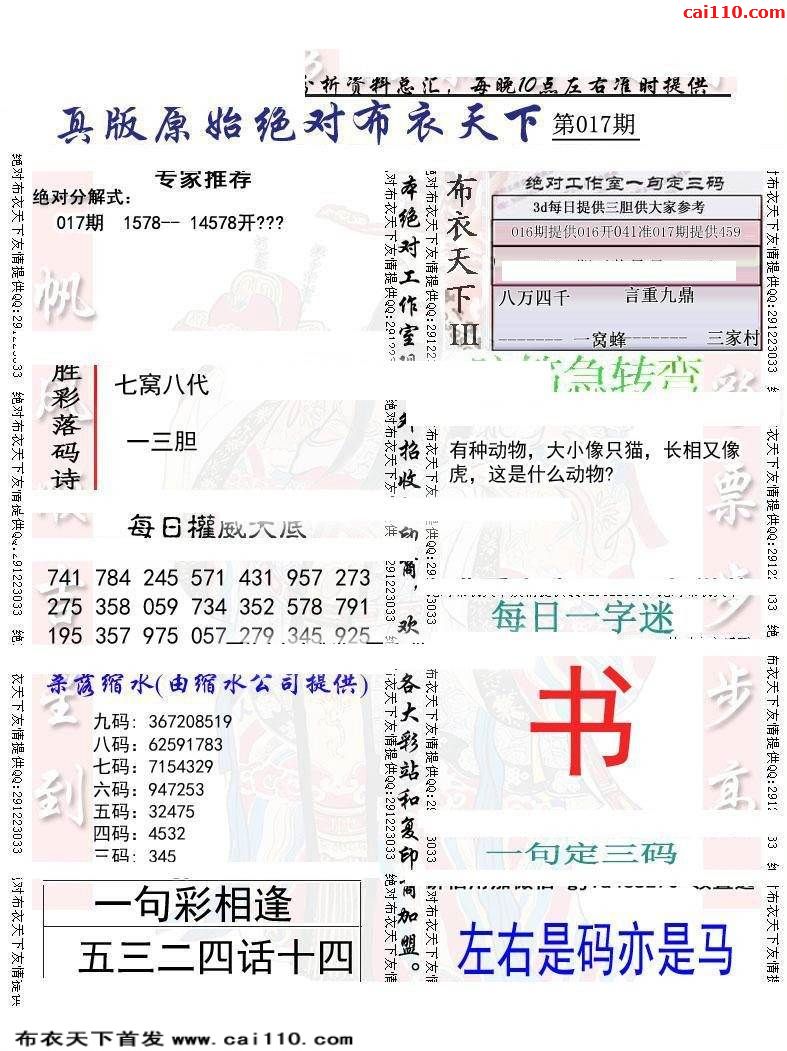 cai110.com
分析资料总汇，每晚10点左右准时提供
真版原始绝对布衣天下 第017期
专家推荐
绝对分解式：
017期 1578-- 14578开???
布衣天下III
绝对工作室一句定三码
3d每日提供三胆供大家参考
016期提供016开041准017期提供459
八万四千 言重九鼎
-------- 一窝蜂------- 三家村
胜彩落码诗
七窝八代
一三胆
急转弯
有种动物，大小像只猫，长相又像
虎，这是什么动物?
每日權威大底
741 784 245 571 431 957 273
275 358 059 734 352 578 791
195 357 975 057 279 345 925
每日一字迷
书
杀落缩水(由缩水公司提供)
九码: 367208519
八码: 62591783
七码: 7154329
六码: 947253
五码: 32475
四码: 4532
三码: 345
一句定三码
左右是码亦是马
一句彩相逢
五三二四话十四
本绝对工作室
招收
商，欢
各大彩站和复印商加盟。
绝对布衣天下友情提供QQ:291223033
布衣天下首发 www.cai110.com